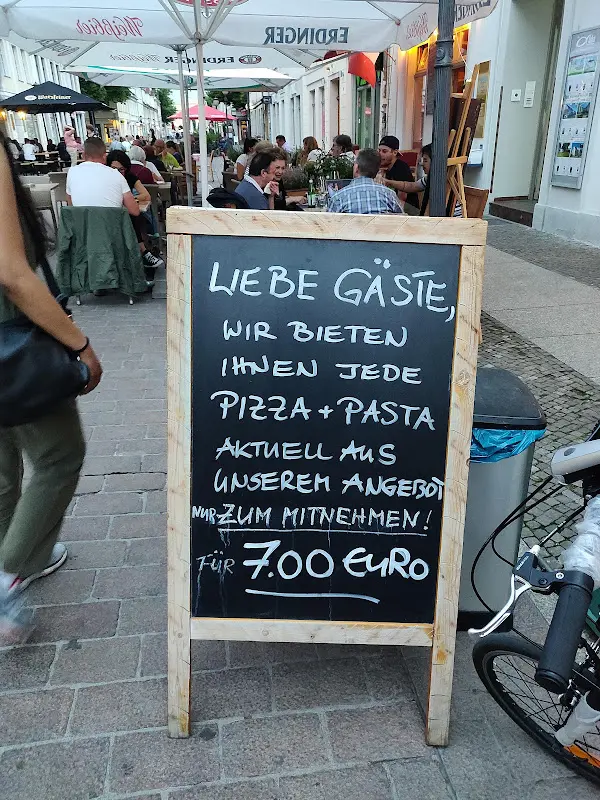 Weißbier
ERDINGER
ERDINGER
LIEBE GÄSTE,
WIR BIETEN
IHNEN JEDE
PIZZA + PASTA
AKTUELL AUS
UNSEREM ANGEBOT
NUR ZUM MITNEHMEN!
FÜR 7.00 EURO